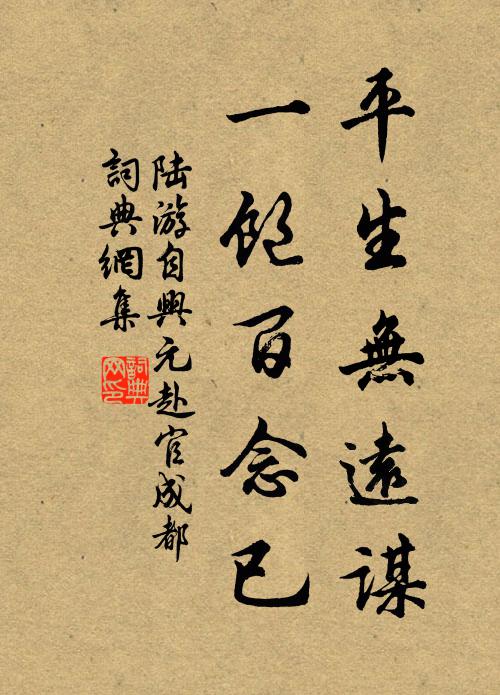 平生無遠謀
一飽百念已
陸游自興元赴官成都
詞典網集
詞典網印